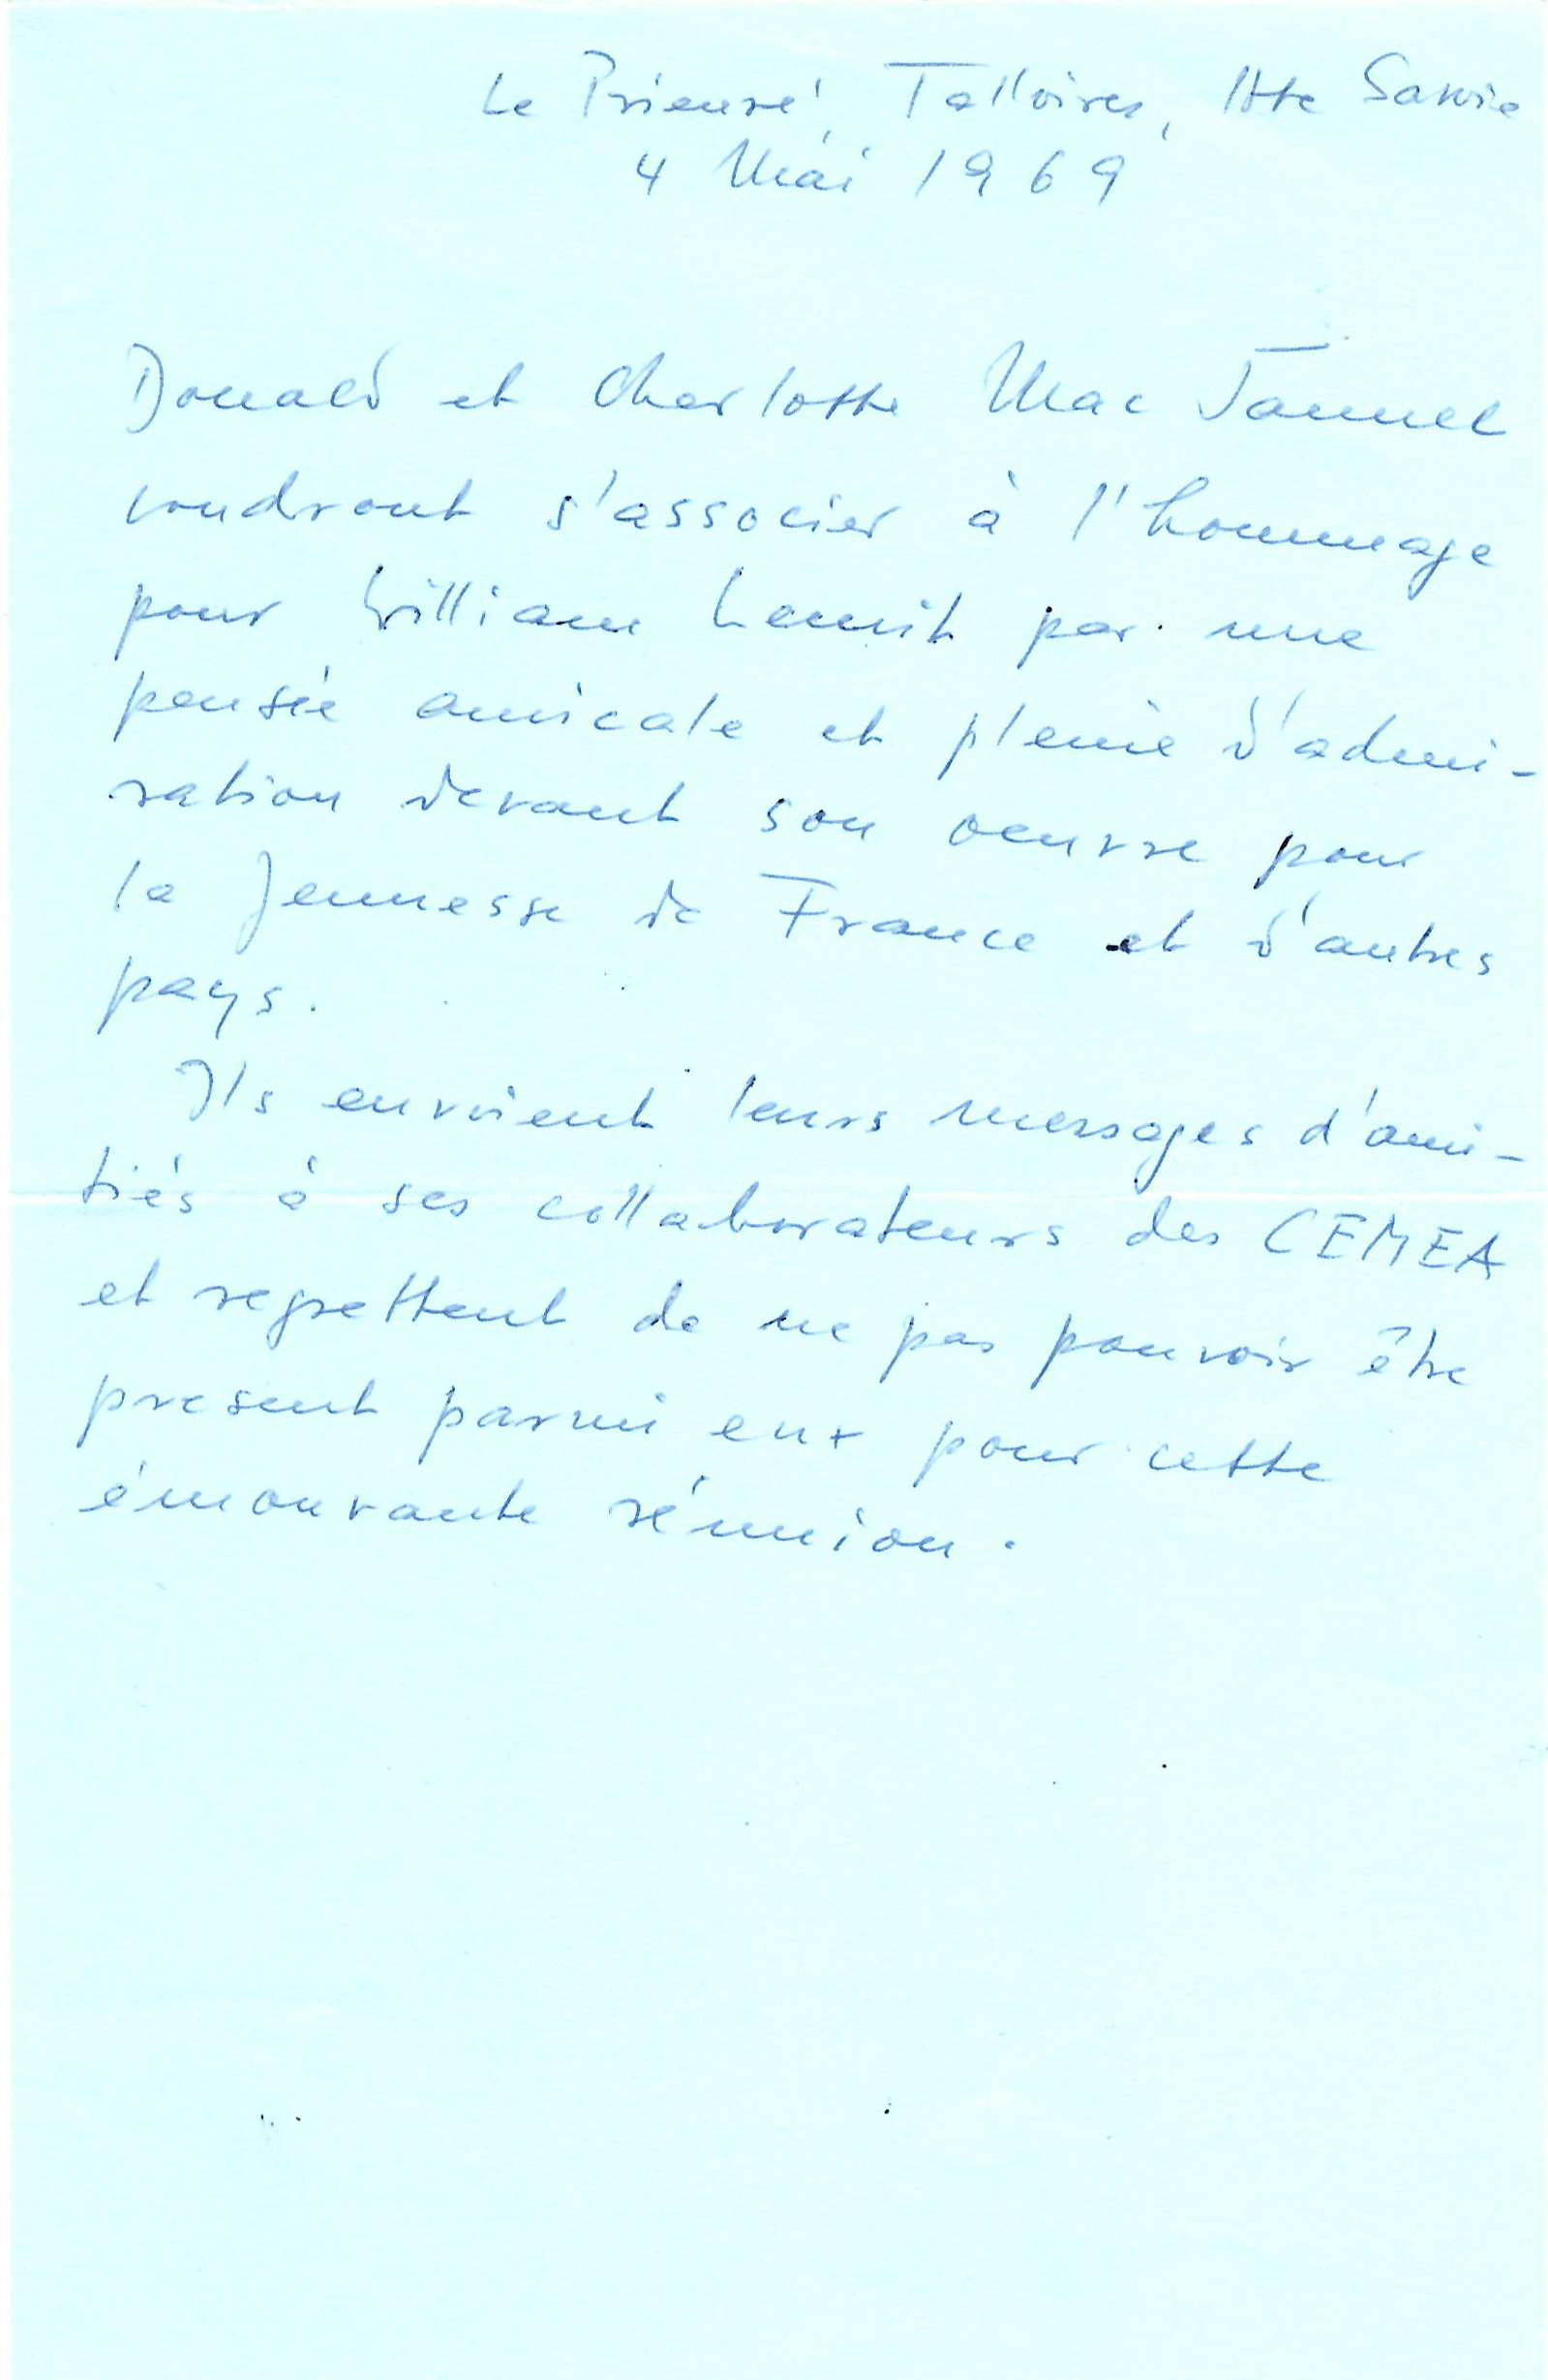 Le Prieuré, Talloires, Hte Savoie
4 Mai 1969
Donald et Charlotte Mac Jannet
voudront s'associer à l'hommage
pour William Lemit par une
pensée amicale et pleine d'admi-
ration devant son oeuvre pour
la Jeunesse de France et d'autres
pays.
Ils envoient leurs messages d'ami-
tiés à ses collaborateurs des CEMEA
et regrettent de ne pas pouvoir être
present parmi eux pour cette
émouvante réunion.